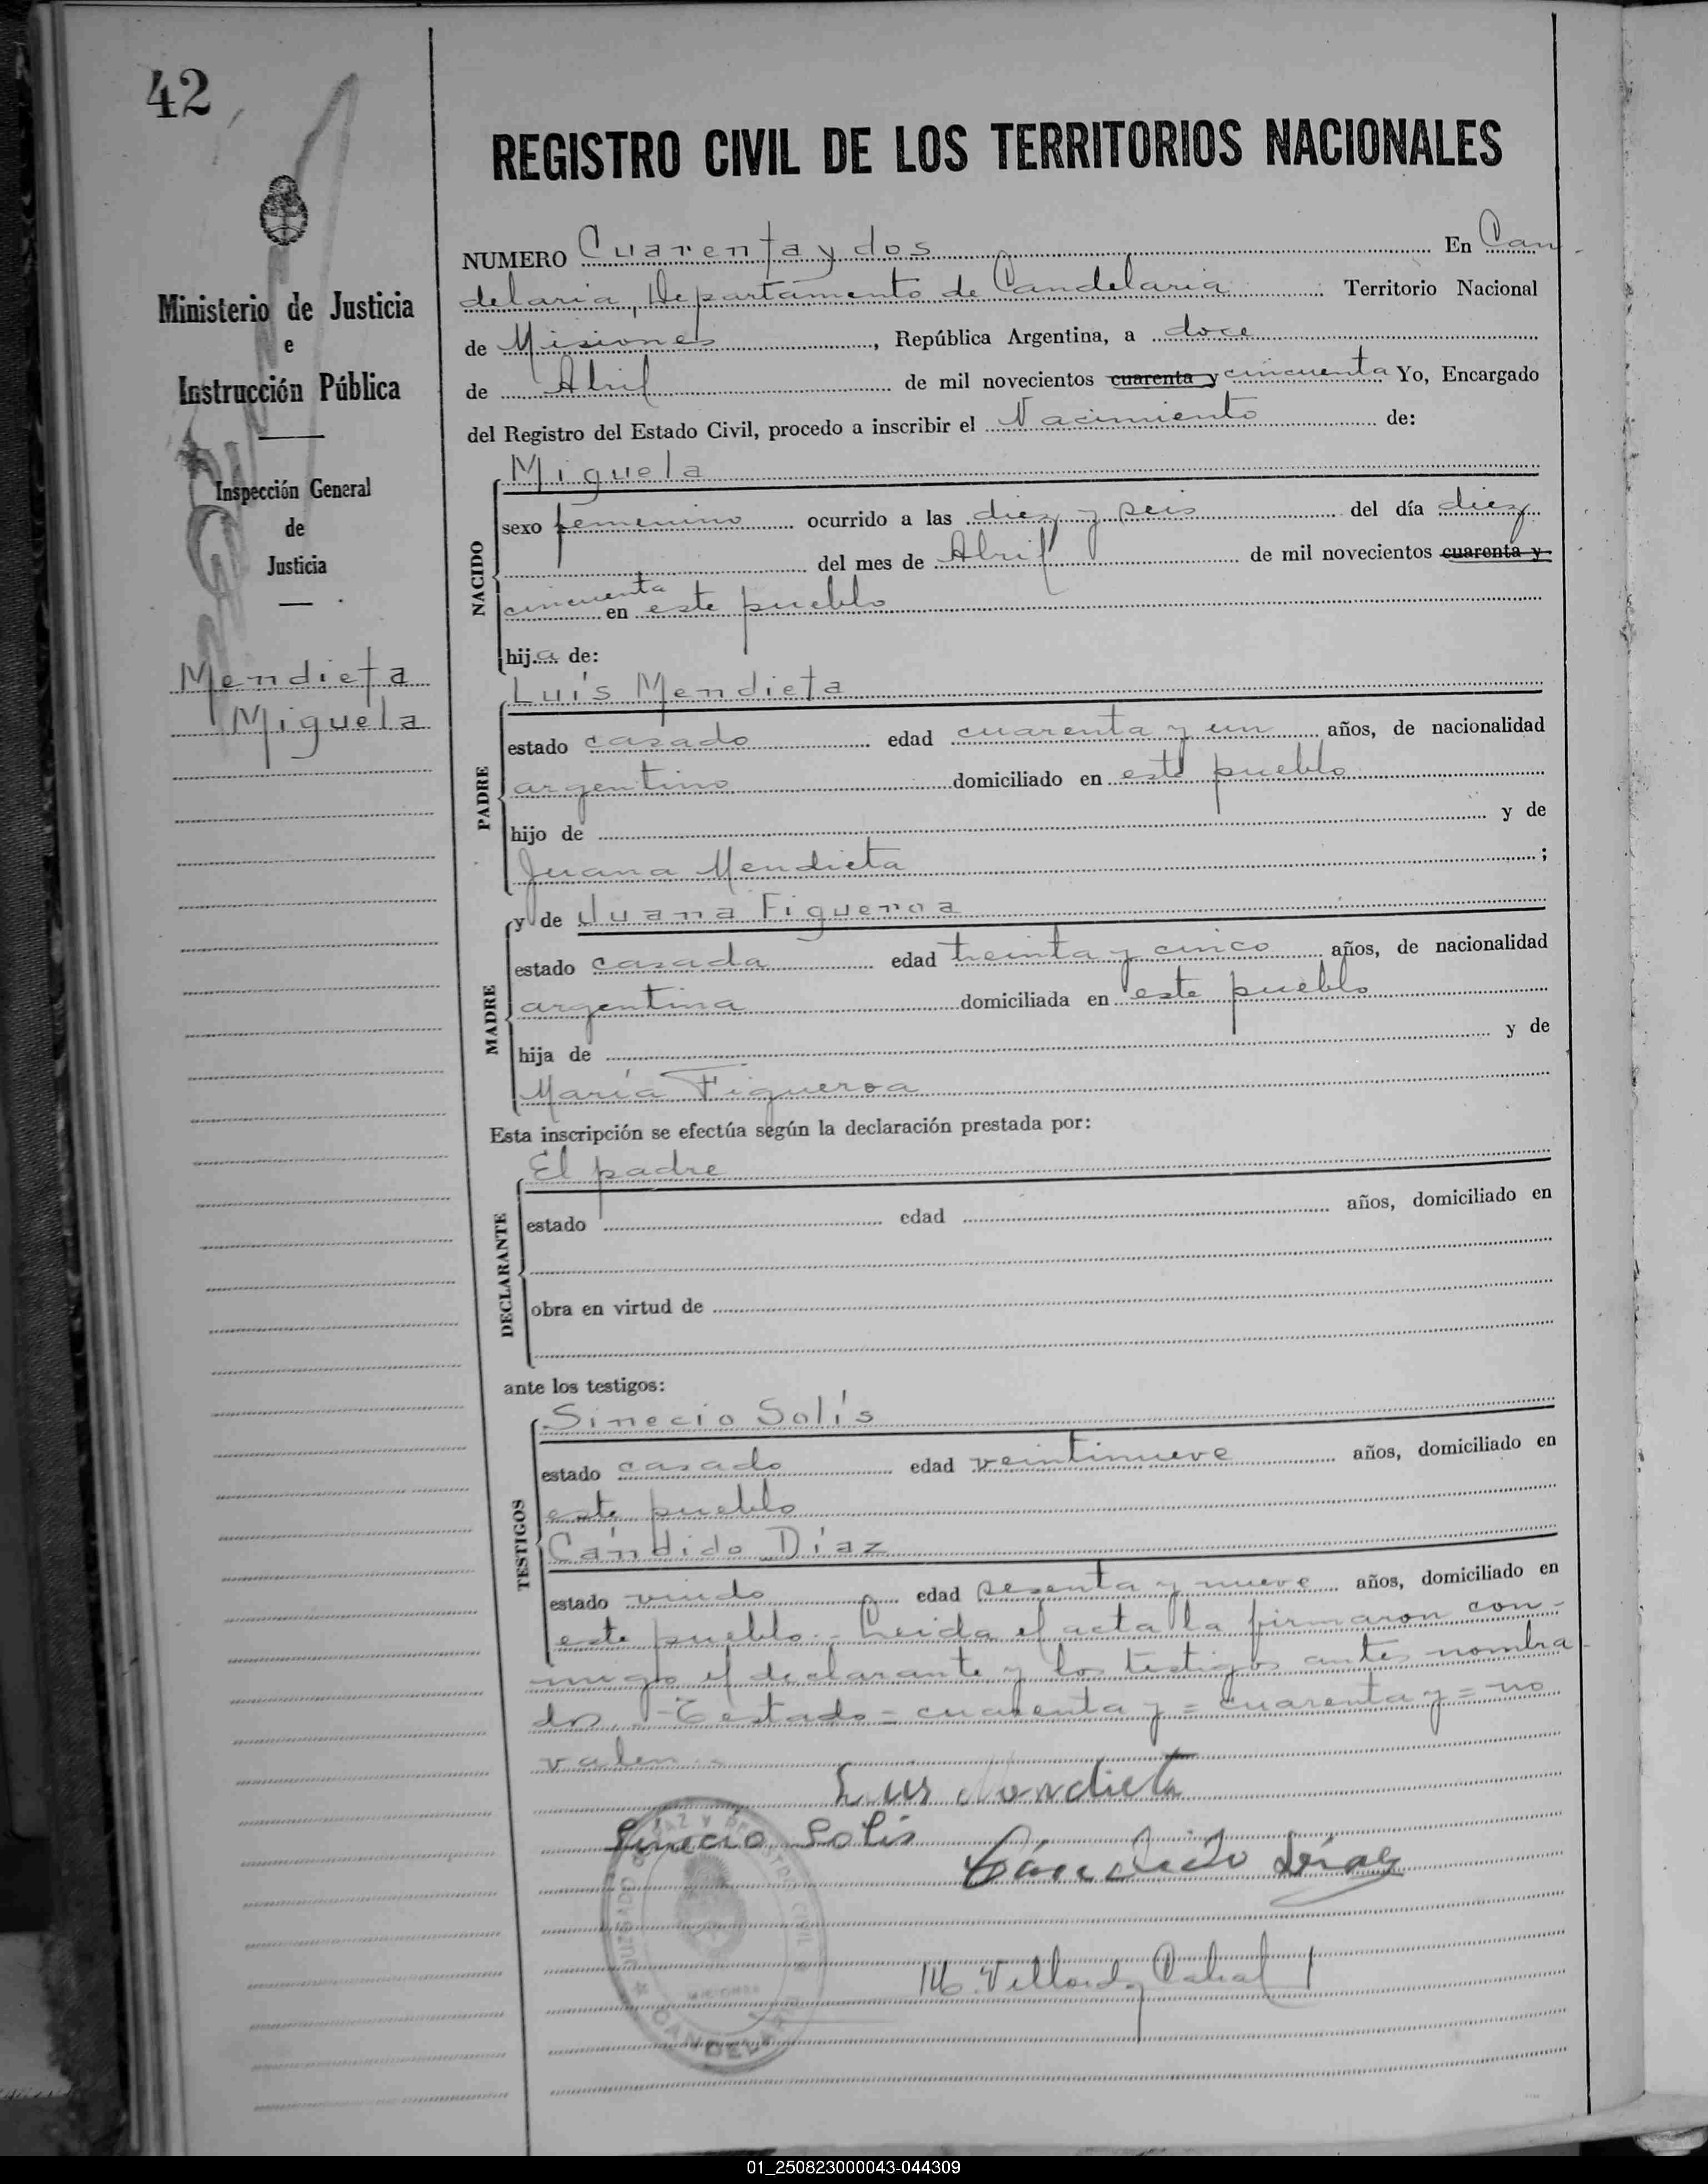 42
REGISTRO CIVIL DE LOS TERRITORIOS NACIONALES
Ministerio de Justicia
e
Instrucción Pública
Inspección General
de
Justicia
Mendieta
Miguela
NUMERO Cuarenta y dos En Can-
delaria, Departamento de Candelaria Territorio Nacional
de Misiones, República Argentina, a doce
de Abril de mil novecientos cuarenta y cincuenta Yo, Encargado
del Registro del Estado Civil, procedo a inscribir el Nacimiento de:
Miguela
NACIDO
sexo femenino ocurrido a las diez y seis del día diez
del mes de Abril de mil novecientos cuarenta y
cincuenta en este pueblo
hija de:
Luís Mendieta
PADRE
estado casado edad cuarenta y un años, de nacionalidad
argentino domiciliado en este pueblo
hijo de y de
Juana Mendieta ;
y de Juana Figueroa
MADRE
estado casada edad treinta y cinco años, de nacionalidad
argentina domiciliada en este pueblo
hija de y de
María Figueroa
Esta inscripción se efectúa según la declaración prestada por:
El padre
DECLARANTE
estado edad años, domiciliado en
obra en virtud de
ante los testigos:
Sinecio Solís
TESTIGOS
estado casado edad veintinueve años, domiciliado en
este pueblo
Cándido Díaz
estado viudo edad sesenta y nueve años, domiciliado en
este pueblo.- Leida el acta la firmaron con-
migo el declarante y los testigos antes nombra-
dos.- Testado = cuarenta y = cuarenta y = no
valen.-
Luis Mendieta
Sinecio Solis
Cándido Díaz
Cabral
CANDEL
01_250823000043-044309